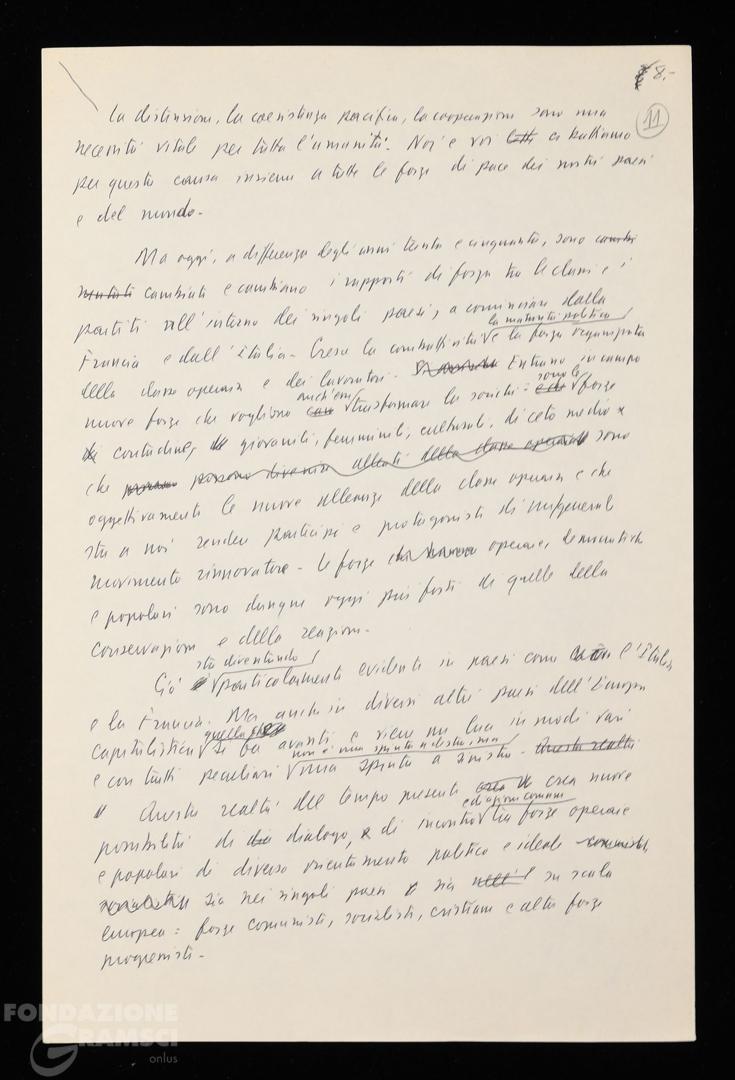 8.-
11
La distensione, la coesistenza pacifica, la cooperazione sono una
necessità vitale per tutta l'umanità. Noi e voi ci battiamo
per questa causa insieme a tutte le forze di pace dei nostri paesi
e del mondo.
Ma oggi, a differenza degli anni trenta e cinquanta, sono
cambiati e cambiano i rapporti di forza tra le classi e i
partiti all'interno dei singoli paesi, a cominciare dalla
la maturità politica
Francia e dall'Italia. Cresce la combattività e la forza organizzata
della classe operaia e dei lavoratori. Entrano in campo
anch'esse sono le
nuove forze che vogliono trasformare la società: forze
contadine, giovanili, femminili, culturali, di ceto medio
che possono divenire alleati della classe operaia sono
oggettivamente le nuove alleanze della classe operaia e che
sta a noi rendere partecipi e protagonisti di un generale
movimento rinnovatore. Le forze operaie, democratiche
e popolari sono dunque oggi più forti di quelle della
conservazione e della reazione.
sta diventando
Ciò particolarmente evidente in paesi come l'Italia
e la Francia. Ma anche in diversi altri paesi dell'Europa
capitalistica si fa avanti e viene in luce in modi vari
non è una spinta a destra, ma
e con tratti peculiari una spinta a sinistra. Questa realtà
Questa realtà del tempo presente crea nuove
ed azioni comuni
possibilità di dialogo, di incontro tra forze operaie
e popolari di diverso orientamento politico e ideale comunisti,
socialisti sia nei singoli paesi sia su scala
europea: forze comuniste, socialiste, cristiane e altre forze
progressiste.
FONDAZIONE
GRAMSCI
onlus